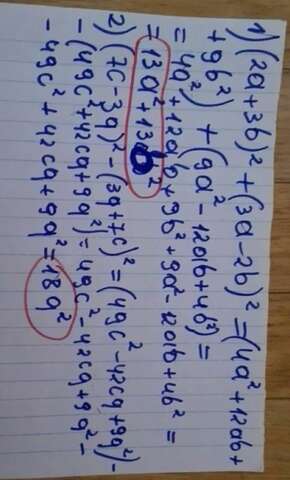 1) (2a+3b)² + (3a-2b)² = (4a² + 12ab +
+ 9b²) + (9a² - 12ab + 4b²) =
= 4a² + 12ab + 9b² + 9a² - 12ab + 4b² =
= 13a² + 13b²
2) (7c - 3q)² - (3q + 7c)² = (49c² - 42cq + 9q²) -
- (49c² + 42cq + 9q²) = 49c² - 42cq + 9q² -
- 49c² + 42cq + 9q² = 18q²